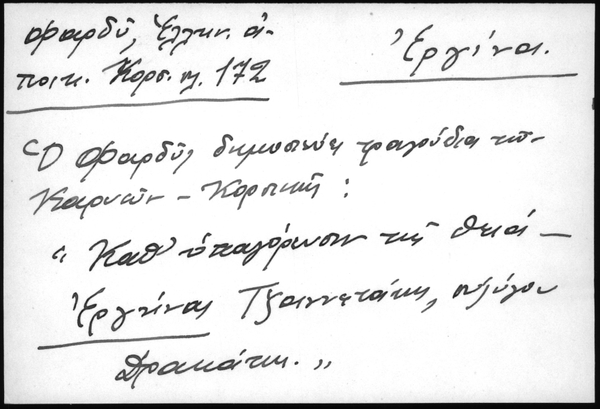 Φαρδῦ, Ἑλλην. ἀ-
ποικ. Κορσ. σελ. 172
Ἐργίνα.
Ὁ Φαρδῦς δημοσιεύει τραγούδια τῶν
Καρυῶν - Κορσικῆς:
"Καθ' ὑπαγόρευσιν τῆς θειᾶ-
Ἐργίνας Τζαννετάκη, συζύγου
Δρακάκη."